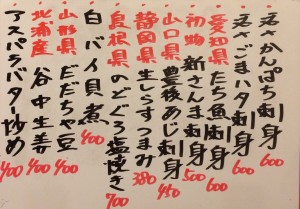 活さかんぱち刺身 600
活ごまハタ刺身 600
愛知県 たち魚刺身 600
初物 新さんま刺身 500
山口県 豊後あじ刺身 450
静岡県 生しらすつまみ 380
島根県 のどぐろ塩焼き 700
白バイ貝煮 400
山形県 だだちゃ豆 400
北浦産 谷中生姜 400
アスパラバター炒め 400